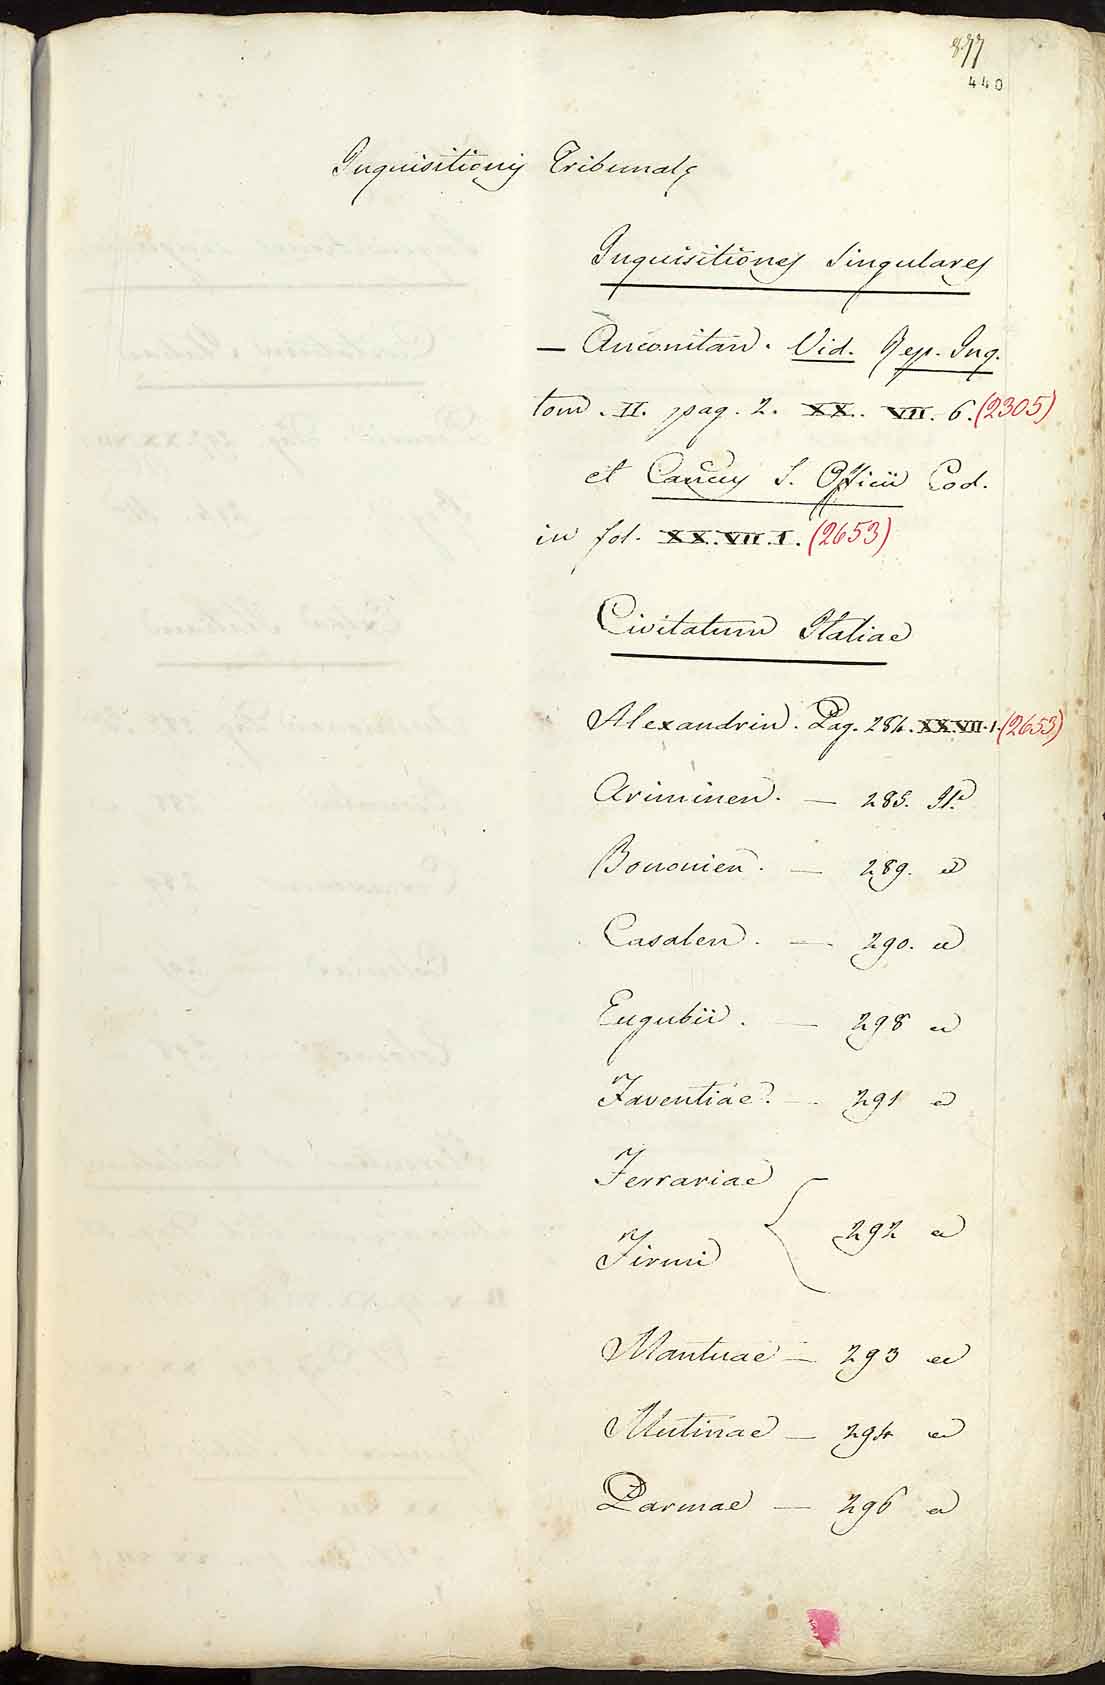 877
440
Inquisitionis Tribunal
Inquisitiones Singulares
— Anconitan. Vid. Rep. Inq.
tom. II. pag. 2. XX. VII. 6. (2305)
et S. Officii Cod.
in fol. XX. VII. 1. (2653)
Civitatum Italiae
Alexandrin. Pag. 284. XX. VII. 1. (2653)
Ariminen. — 285. Id
Bononien. — 289. id
Casalen. — 290. id
Eugubii. — 298 id
Faventiae. — 291 id
Ferrariae
Firmi { 292 id
Mantuae — 293 id
Mutinae — 294 id
Parmae — 296 id